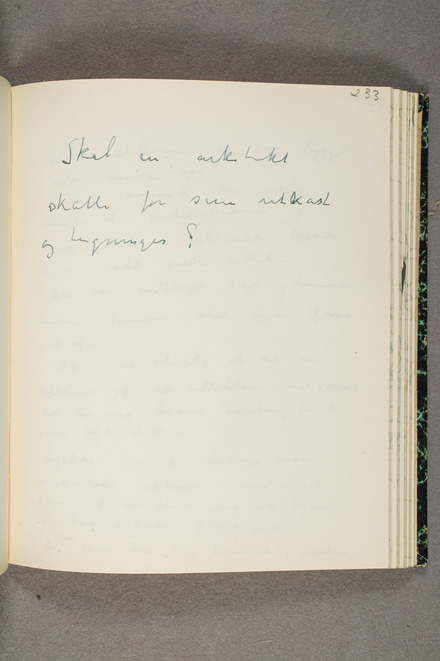 233
Skal en arkitekt
skatte for sine utkast
og tegninger ?